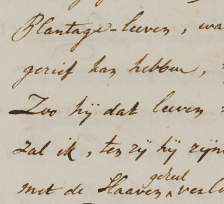 Plantage-leeven, wa
gerief kan hebben,
Zoo hij dat leeven
zal ik, ten zij hij zijn
met de Slaaven geheel verlo